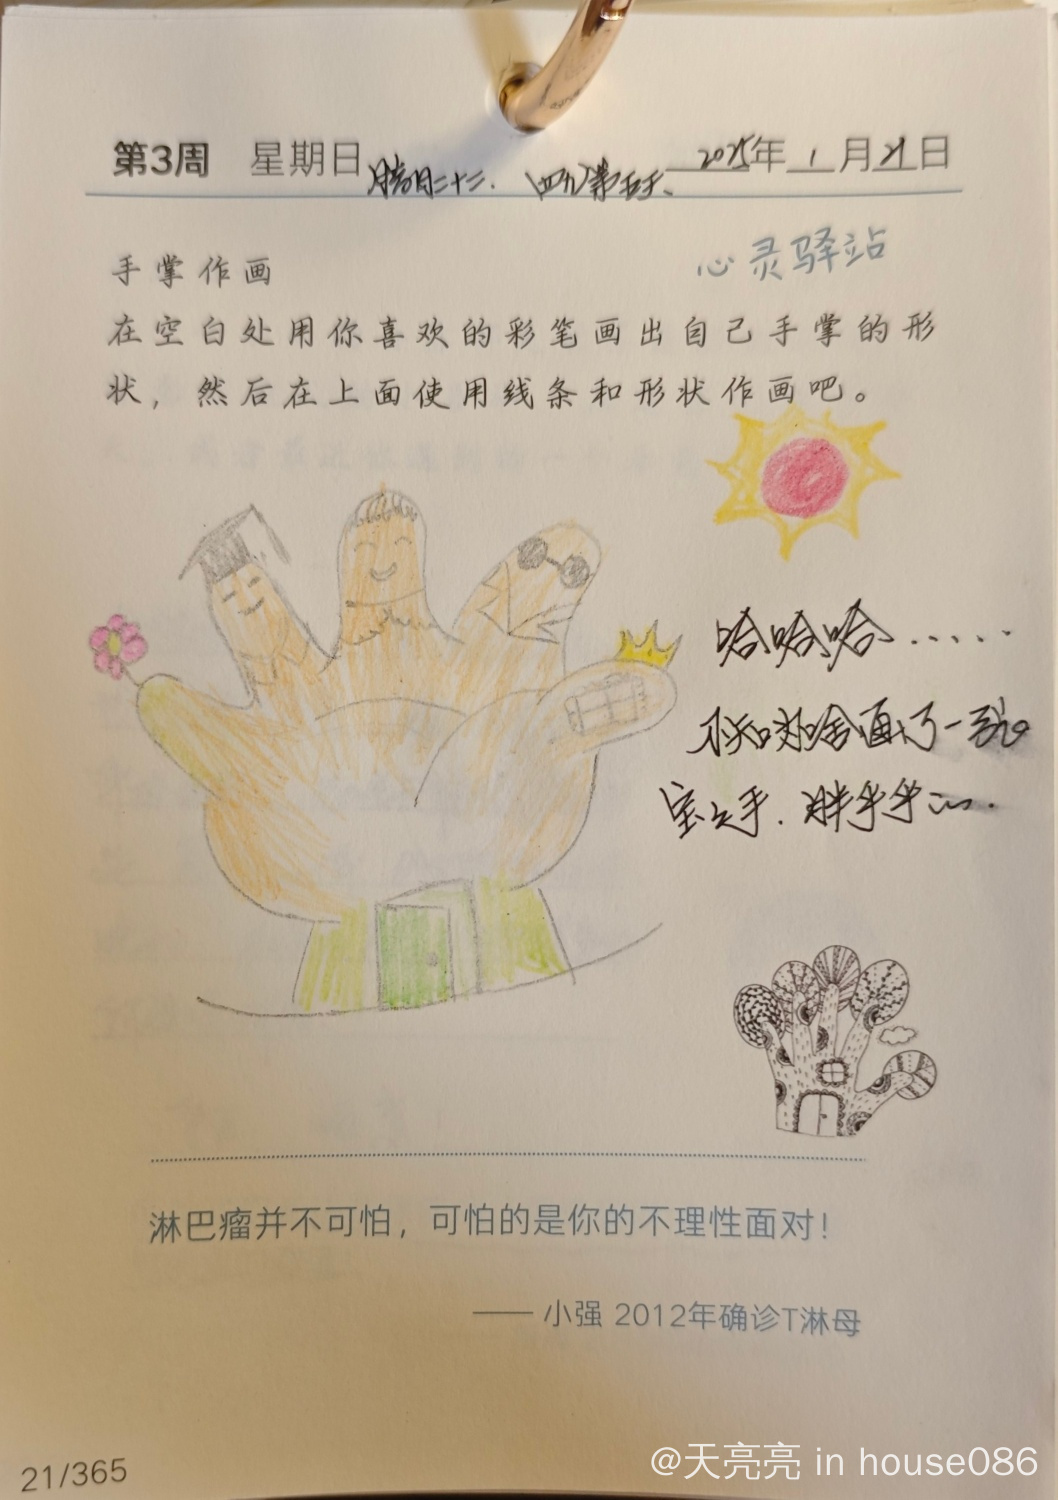 第3周 星期日 2025年1月21日
腊月二十二. 四九第五天.
心灵驿站
手掌作画
在空白处用你喜欢的彩笔画出自己手掌的形
状，然后在上面使用线条和形状作画吧。
哈哈哈......
不知道啥画了一张
宝之手. 胖乎乎
淋巴瘤并不可怕，可怕的是你的不理性面对！
—— 小强 2012年确诊T淋母
21/365
@天亮亮 in house086